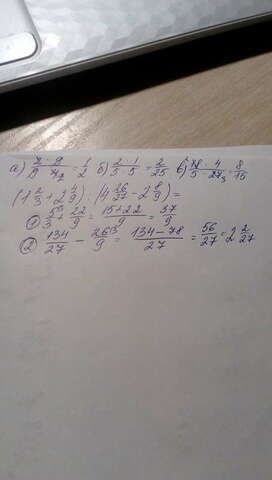 а) 7 · 9 / 9 · 14₂ = 1/2 б) 2 · 1 / 5 · 5 = 2/25 в) 18 · 4 / 5 · 27₃ = 8/15
(1 2/3 + 2 4/9) : (4 26/27 - 2 8/9) =
① 5/3 + 22/9 = 15+22 / 9 = 37/9
② 134/27 - 26/9 = 134-78 / 27 = 56/27 = 2 2/27